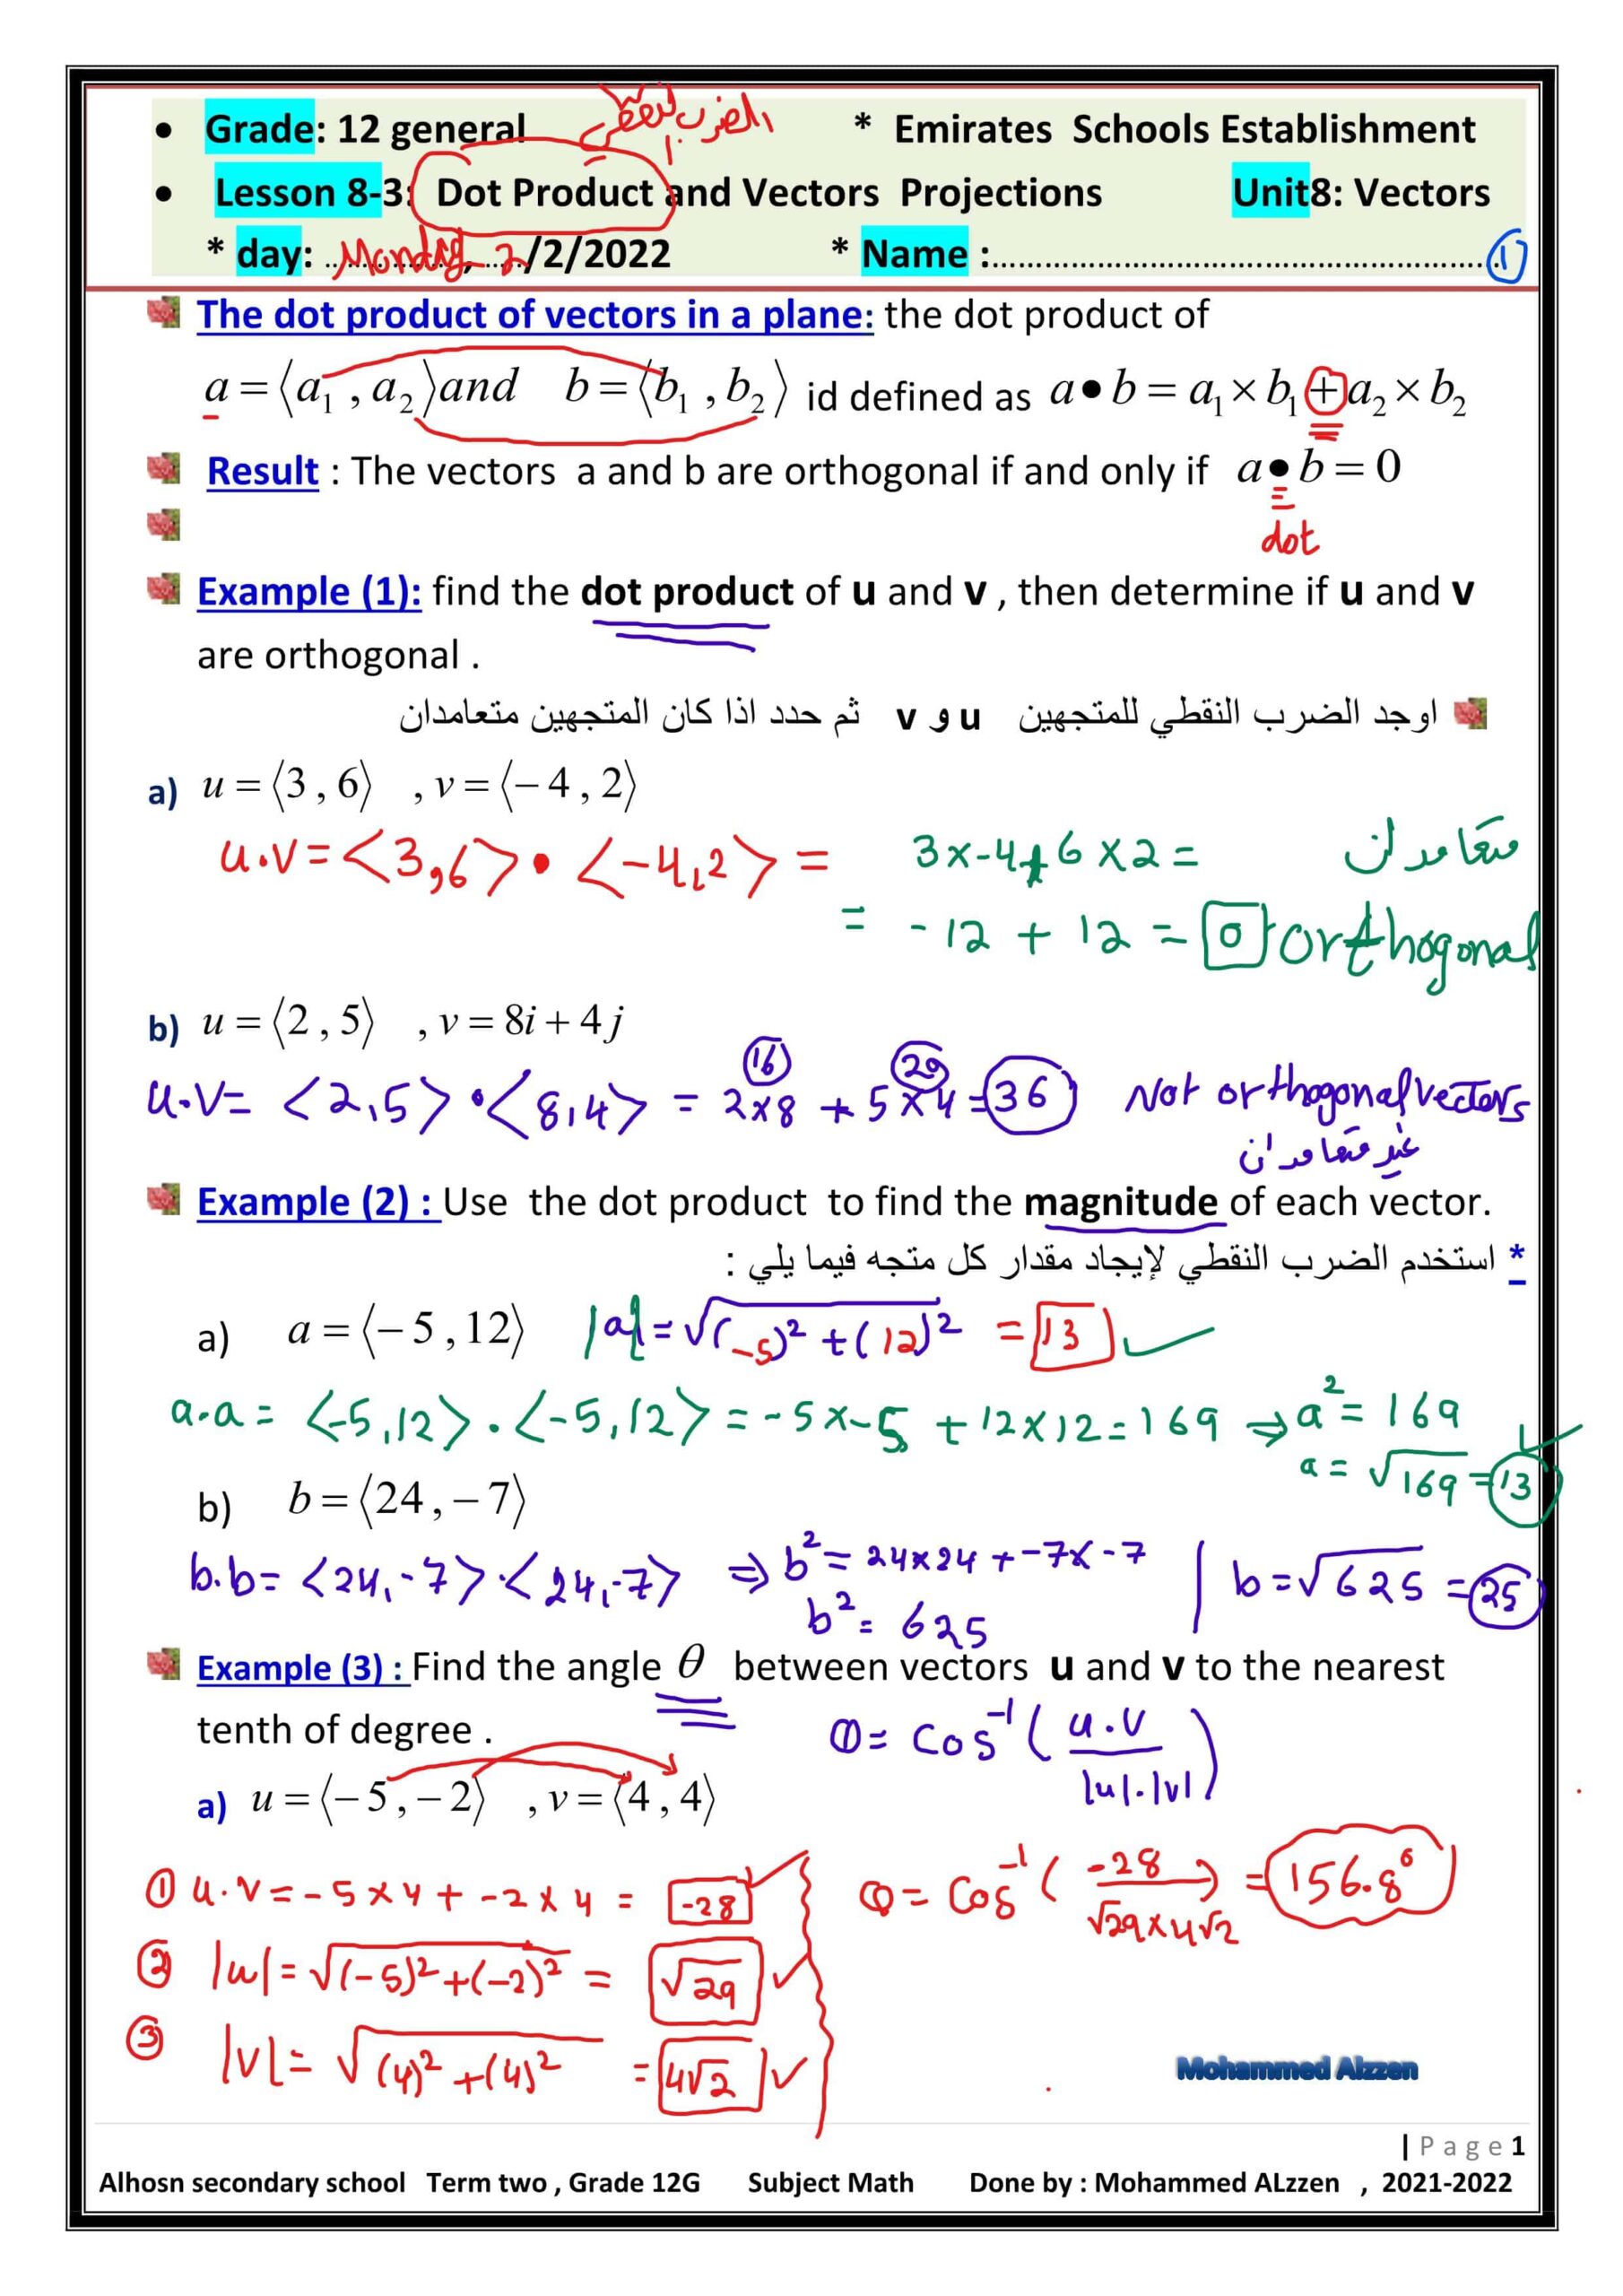 • Grade: 12 general * Emirates Schools Establishment
الضرب النقطي
• Lesson 8-3: Dot Product and Vectors Projections Unit8: Vectors
* day: Monday, 2/2/2022 * Name :.......... 1
The dot product of vectors in a plane: the dot product of
a = ⟨a₁ , a₂⟩ and b = ⟨b₁ , b₂⟩ id defined as a • b = a₁ × b₁ + a₂ × b₂
Result : The vectors a and b are orthogonal if and only if a • b = 0
dot
Example (1): find the dot product of u and v , then determine if u and v
are orthogonal .
اوجد الضرب النقطي للمتجهين u و v ثم حدد اذا كان المتجهين متعامدان
a) u = ⟨3 , 6⟩ , v = ⟨− 4 , 2⟩
u.v = <3,6> • <-4,2> = 3x-4+6x2 = متعامدان
= -12 + 12 = 0 orthogonal
b) u = ⟨2 , 5⟩ , v = 8i + 4j
16 20
u.v = <2,5> • <8,4> = 2x8 + 5x4 = 36 Not orthogonal vectors
غير متعامدان
Example (2) : Use the dot product to find the magnitude of each vector.
* استخدم الضرب النقطي لإيجاد مقدار كل متجه فيما يلي :
a) a = ⟨− 5 , 12⟩ |a| = √(-5)² + (12)² = 13
a.a = <-5,12> . <-5,12> = -5x-5 + 12x12 = 169 ⇒ a² = 169
a = √169 = 13
b) b = ⟨24 , − 7⟩
b.b = <24,-7> . <24,-7> ⇒ b² = 24x24 + -7x-7 | b = √625 = 25
b² = 625
Example (3) : Find the angle θ between vectors u and v to the nearest
tenth of degree . θ = Cos⁻¹ ( u.v / |u|.|v| )
a) u = ⟨− 5 , − 2⟩ , v = ⟨4 , 4⟩
① u.v = -5x4 + -2x4 = -28 θ = Cos⁻¹ ( -28 / √29x4√2 ) = 156.8°
② |u| = √(-5)² + (-2)² = √29
③ |v| = √(4)² + (4)² = 4√2
Mohammed Alzzen
| Page 1
Alhosn secondary school Term two , Grade 12G Subject Math Done by : Mohammed ALzzen , 2021-2022